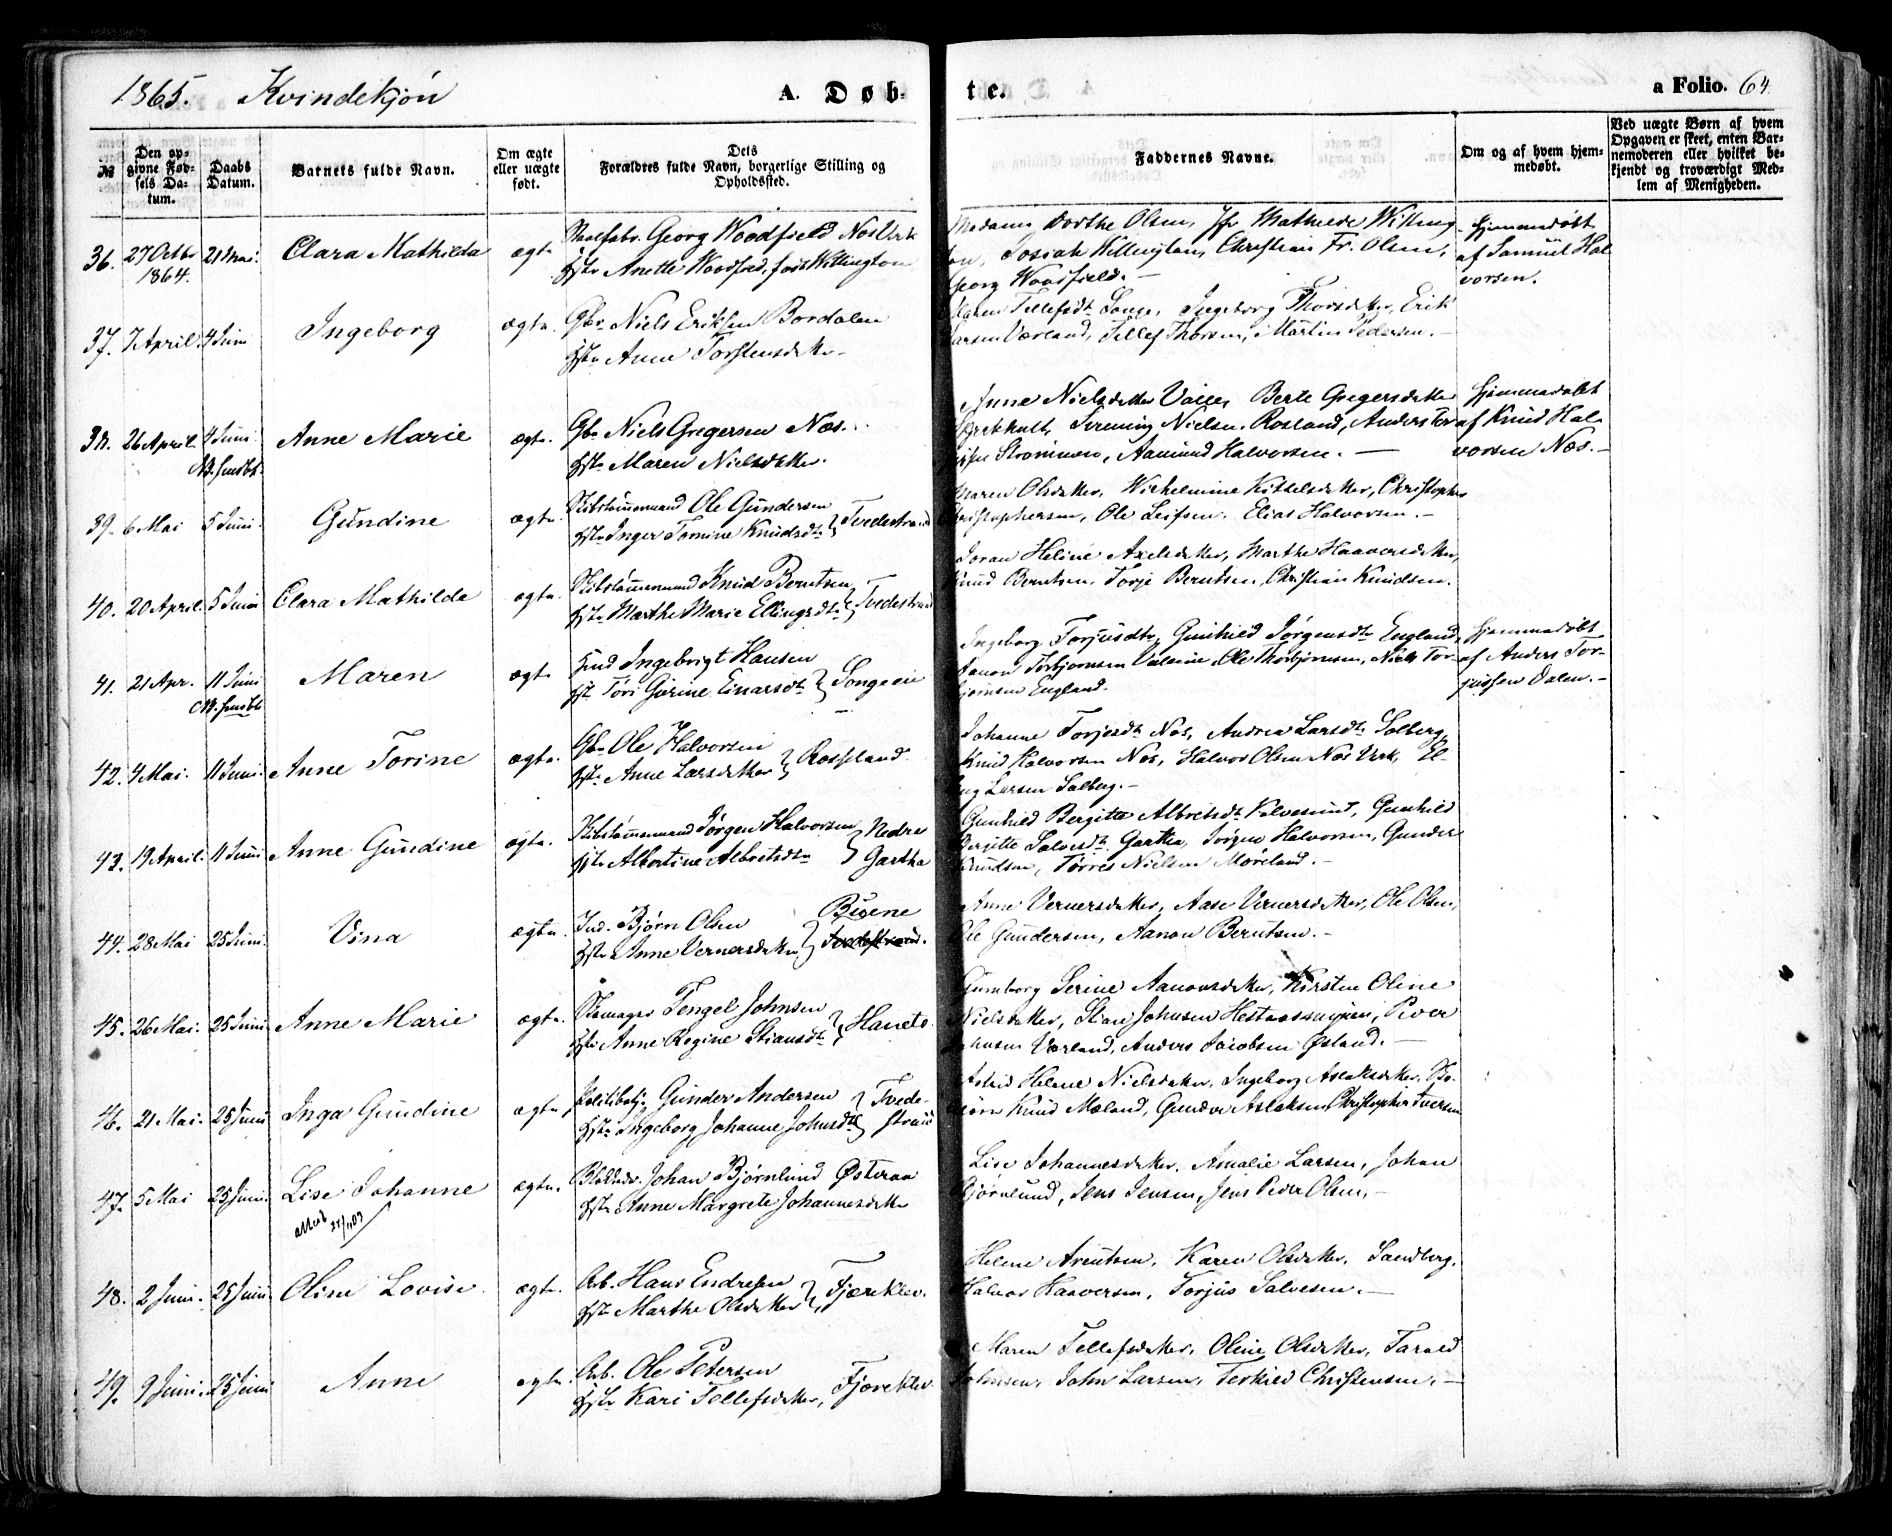 1865. Kvindekjön
A. Døb-
te.
a Folio. 64
№
Den op-
givne Fød-
sels Da-
tum.
Daabs
Datum.
Barnets fulde Navn.
Om ægte
eller uægte
født.
Dets
Forældres fulde Navn, borgerlige Stilling og
Opholdssted.
Faddernes Navne.
Om og af hvem hjem-
medøbt.
Ved uægte Børn af hvem
Opgaven er skeet, enten Bar-
nemoderen eller hvilket be-
kjendt og troværdigt Med-
lem af Menigheden.
36. 27 Octbr 1864. 21 Mai. Clara Mathilda ægte
Georg Woodfield Nos Verk
Hstr Anette Woodfield, født Willington
Madam Dorthe Olsen, Jfr Mathilde Willing
ton, Josiah Willington, Christian Fr. Olsen,
Georg Woodfield.-
Hjemmedøbt
af Samuel Hal
vorsen.
37. 7 April. 4 Juni Ingeborg ægte.
Gbr Niels Eriksen Bordalen
Hstr Anne Torstensdatter.
Maren Tellefsdt Songe, Ingeborg Thorsdatter, Erik
Larsen Værland, Tellef Thorsen, Martin Pedersen.-
38. 26 April. 4 Juni. Anne Marie ægte.
Gbr Niels Gregersen Næs.
Hstr Maren Nielsdatter.
Anne Nielsdatter Berte Gregersdatter
Nielsen Rosland, Anders Ter
Aamund Halvorsen.-
Hjemmedøbt
af Knud Hal-
vorsen Næs.-
39. 6 Mai 5 Juni. Gundine ægte.
Skibstømmermand Ole Gundersen
Hstr Inger Tomine Knudsdtr } Tvedestrand
Maren Olsdatter, Wilhelmine Kittelsdatter, Christopher
Christophersen, Ole Leifsen, Elias Halvorsen.-
40. 20 April. 5 Juni Clara Mathilde ægte.
Skibstømmermand Knud Berntsen
Hstr Marthe Marie Ellingsdtr } Tvedestrand
Joran Heline Axelsdatter, Marthe Haaversdatter,
Knud Berntsen, Torje Berntsen, Christian Knudsen.
41. 21 Apr. 11 Juni Maren ægte
Ingebrigt Hansen
Hstr Tori Gurine Einarsdtr } Songeeie
Ingeborg Torjusdtr, Gunhild Jørgensdtr England,
Aanon Torbjornsen Ole Thorbjørnsen, Niels Tor-
bjørnsen England.
Hjemmedøbt
af Anders Tor-
jussen Dalen.-
42. 4 Mai. 11 Juni. Anne Torine ægte.
Gbr Ole Halvorsen
Hstr Anne Larsdatter } Rossland.
Johanne Torjesdtr Nos, Andrea Larsdtr Solberg,
Knud Halvorsen Nos, Halvor Olsen Nos Verk, El-
ling Larsen Solberg.-
43. 19 April. 11 Juni Anne Gundine ægte.
Skibstømmermand Jørgen Halvorsen
Hstr Albertine Albretsdtr } Nedre Gartha
Gunhild Bergitte Albretsdtr Kalvesund, Gunhild
Bergitte Salvesdt Gartha, Jørgen Halvorsen, Gunder
Knudsen, Tørres Nielsen Møreland.-
44. 28 Mai 25 Juni. Vina ægte.
Ind. Bjørn Olsen
Hstr Anne Vernersdatter } Bugene Tvedestrand.
Anne Vernersdatter, Aase Vernersdatter, Ole Olsen,
Ole Gundersen, Aanon Berntsen.-
45. 26 Mai. 25 Juni. Anne Marie ægte.
Skomager Tengel Johnsen
Hstr Anne Regine Stiansdtr } Hanets
Gunborg Serine Aanonsdatter, Kirsten Oline
Nielsdatter, Stian Johnsen Peder
Johnsen Værland, Anders Jacobsen Øsland.-
46. 21 Mai. 25 Juni Inga Gundine ægte
Politibetj. Gunder Andersen
Hstr Ingeborg Johanne Johnsdtr } Tvede-strand
Astrid Helene Nielsdatter, Ingeborg Aslaksdatter, To-
biørn Knud Mæland, Gunder Aslaksen, Christopher Iversen
47. 5 Mai 25 Juni. Lise Johanne ægte.
Attest 25/11 09
Johan Bjørnlund Østeraa
Hstr Anne Margrete Johannesdatter
Lise Johannesdatter, Amalie Larsen, Johan
Bjørnlund, Jens Jensen, Jens Peder Olsen.-
48. 2 Juni. 25 Juni. Oline Lovise. ægte.
Arb. Hans Endresen
Hstr Marthe Olsdatter } Fjæreklev.
Helene Arentsen, Karen Olsdatter, Sandberg,
Halvor Haaversen, Torjus Salvesen.-
49. 9 Juni. 25 Juni Anne ægte.
Arb. Ole Petersen
Hstr Kari Tellefsdatter, Fjæreklev
Maren Tellefsdatter, Oline Olsdatter, Tarald
Johnsen, John Larsen, Terkild Christensen.-